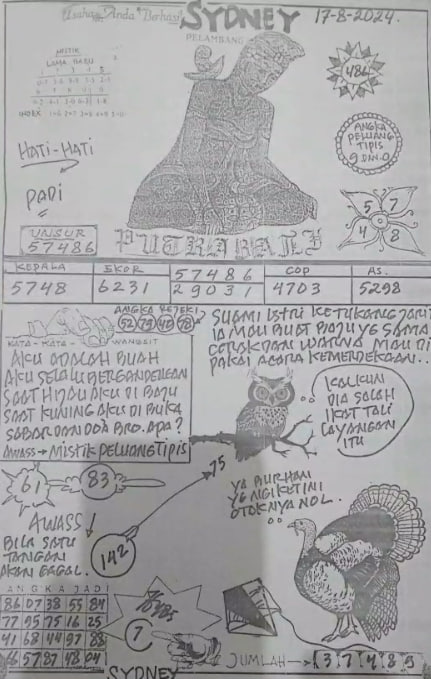 Usaha Anda Berhasil
SYDNEY
17-8-2024.
PELAMBANG
MISTIK
LAMA BARU
INDEX
486
HATI-HATI
PADI
ANGKA
PELUANG
TIPIS
9 DAN 0
5 7
4 8
UNSUR
57486
PUTRA BALI
KEPALA EKOR 57486 COP AS.
5748 6231 29031 4703 5298
ANGKA REJEKI
52 79 48 78
KATA-KATA WANGSIT
AKU ADALAH BUAH
AKU SELALU BERGANDENGAN
SAAT HIJAU AKU DI BAJU
SAAT KUNING AKU DI BUKA
SABAR DAN DOA BRO. APA?
AWASS → MISTIK PELUANG TIPIS
SUAMI ISTRI KETUKANG JARI
IA MAU BUAT BAJU YG SAMA
CORAK DAN WARNA MAU DI
PAKAI ACARA KEMERDEKAAN..
KALKUN
DIA SALAH
IKAT TALI
LAYANGAN
ITU
61
83
75
YA BURHAN
YG NGIKETINI
OTOKNYA NOL.
AWASS!
BILA SATU
TANGAN
AKAN GAGAL.
142
ANGKA JADI
86 07 38 55 84
77 95 75 16 25
41 68 44 97 88
66 57 87 48 04
7
SYDNEY
JUMLAH → 3 7 4 8 5